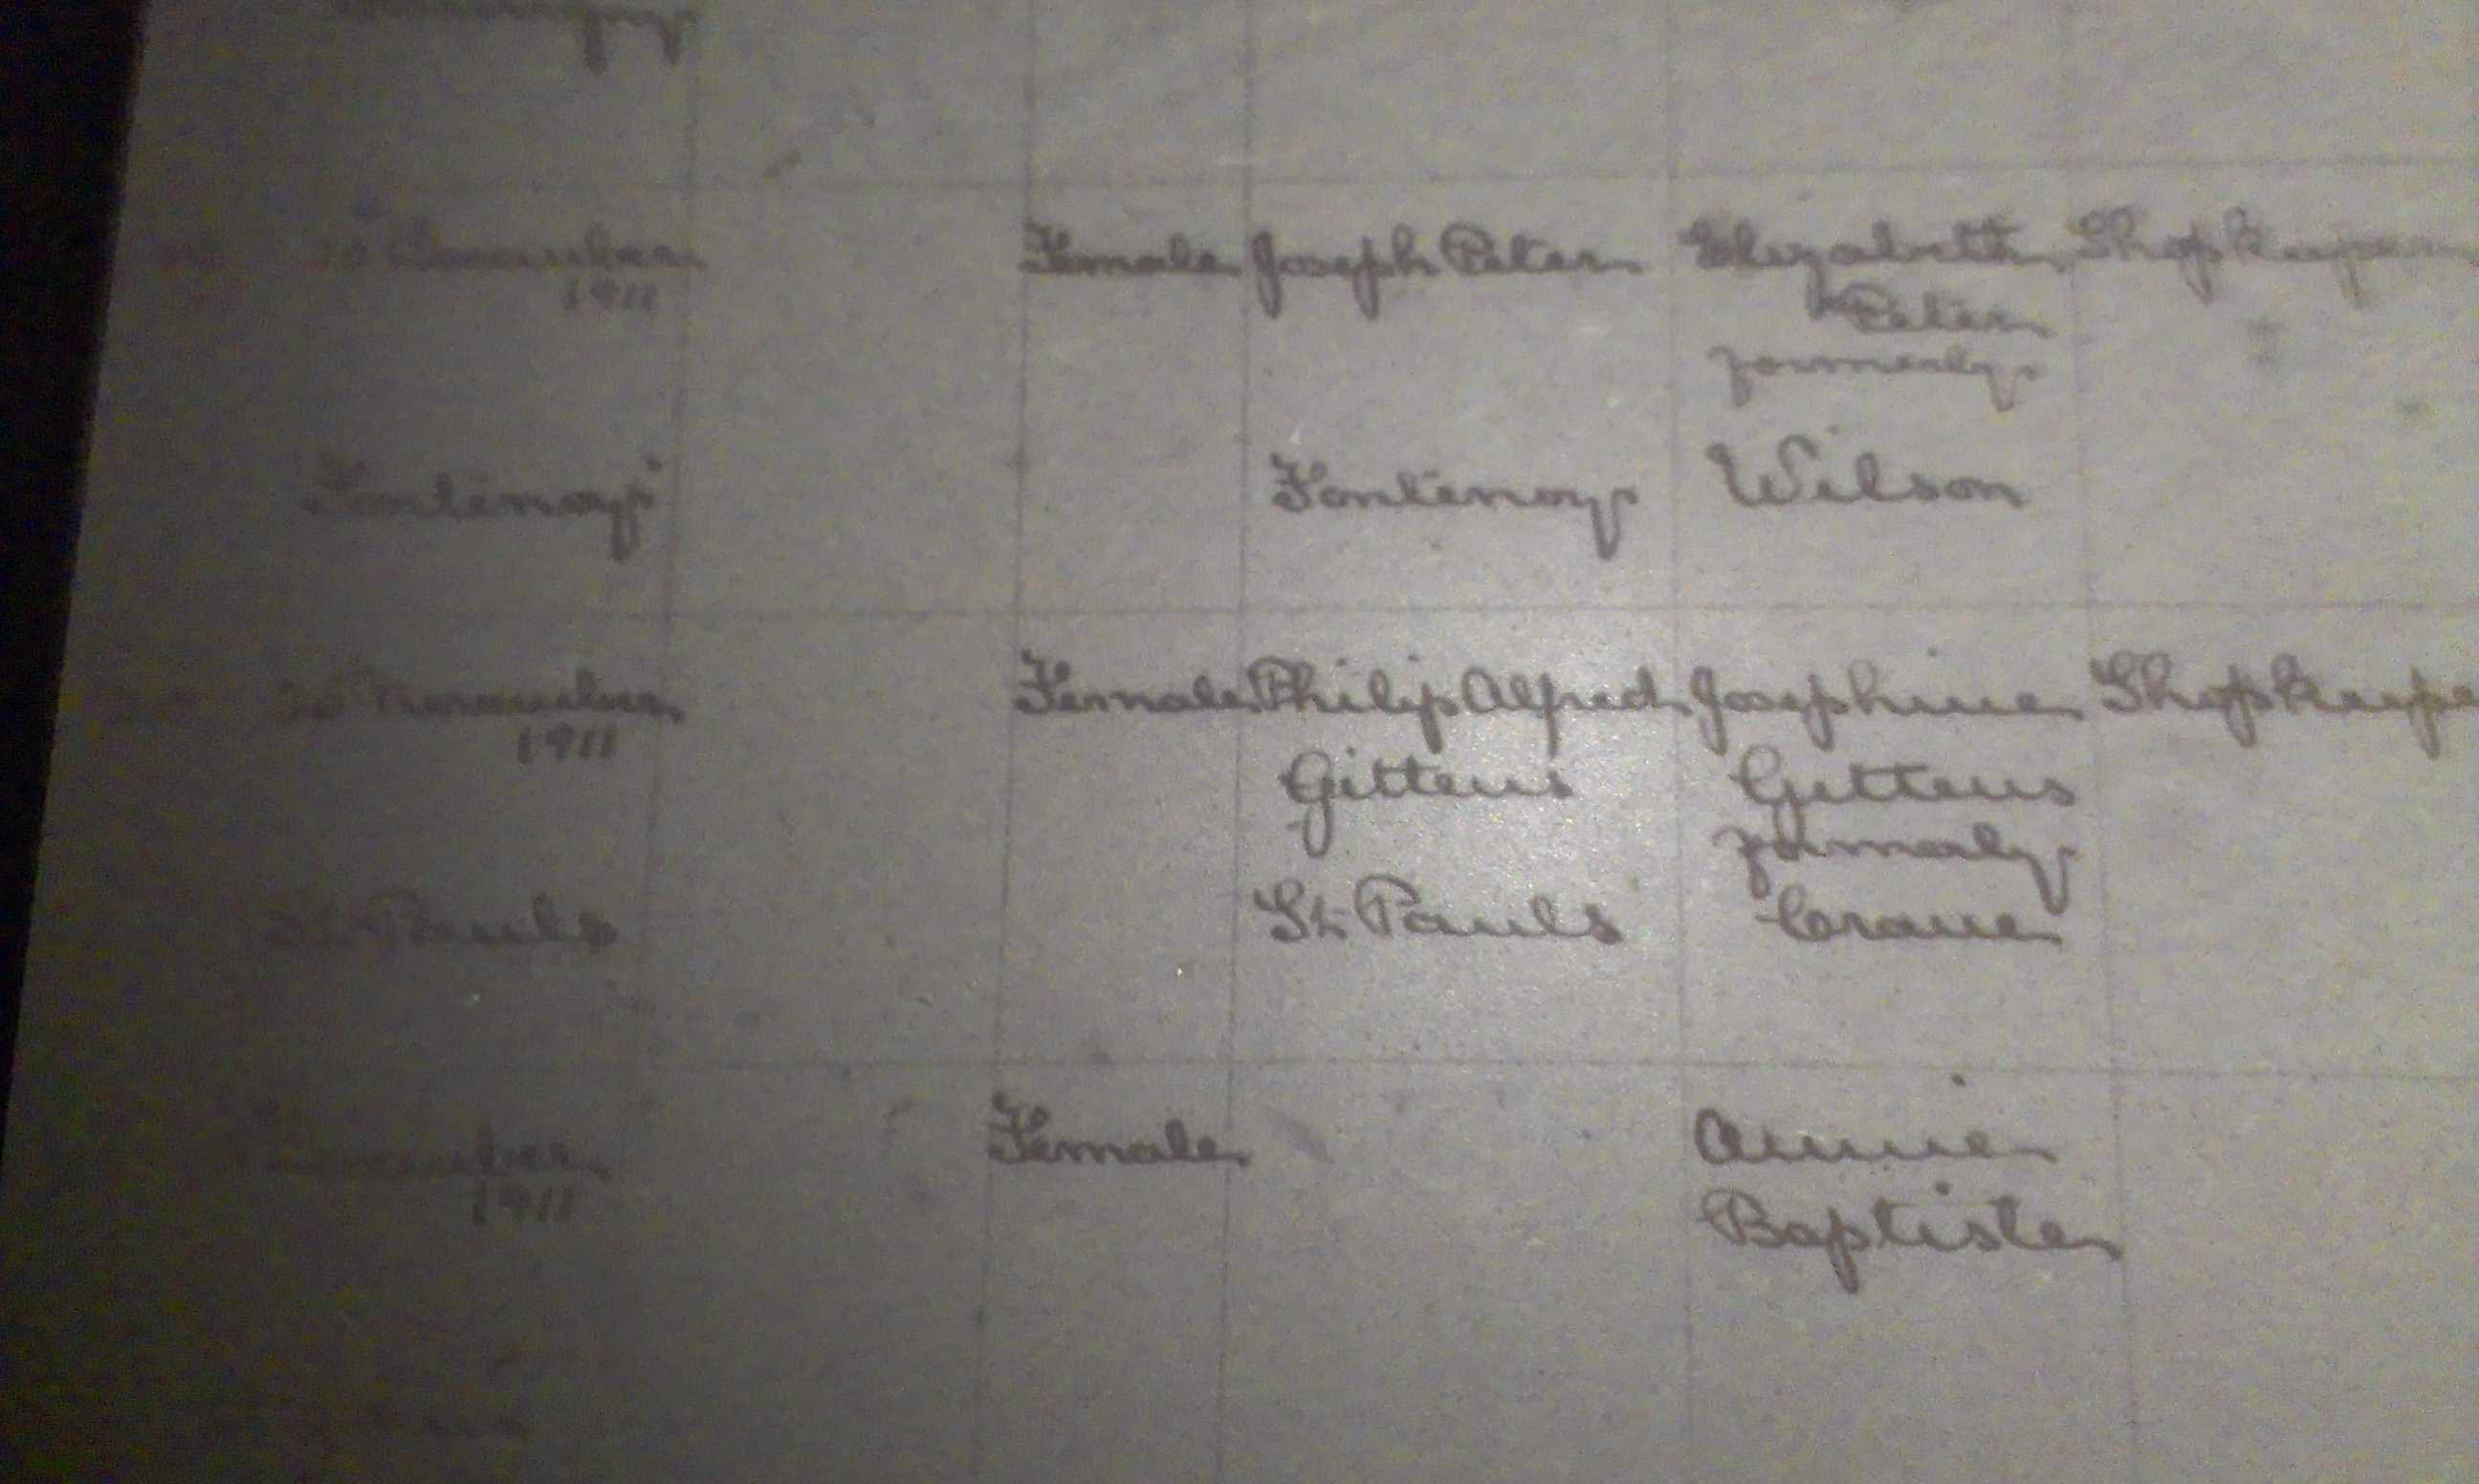 Female Joseph Peter Elizabeth Shopkeeper
1911
Peter
formerly
Fontenoy Fontenoy Wilson
November Female Philip Alfred Josephine Shopkeepe
1911
Gittens Gittens
formerly
St Pauls St Pauls Crane
Female Annie
1911
Baptiste